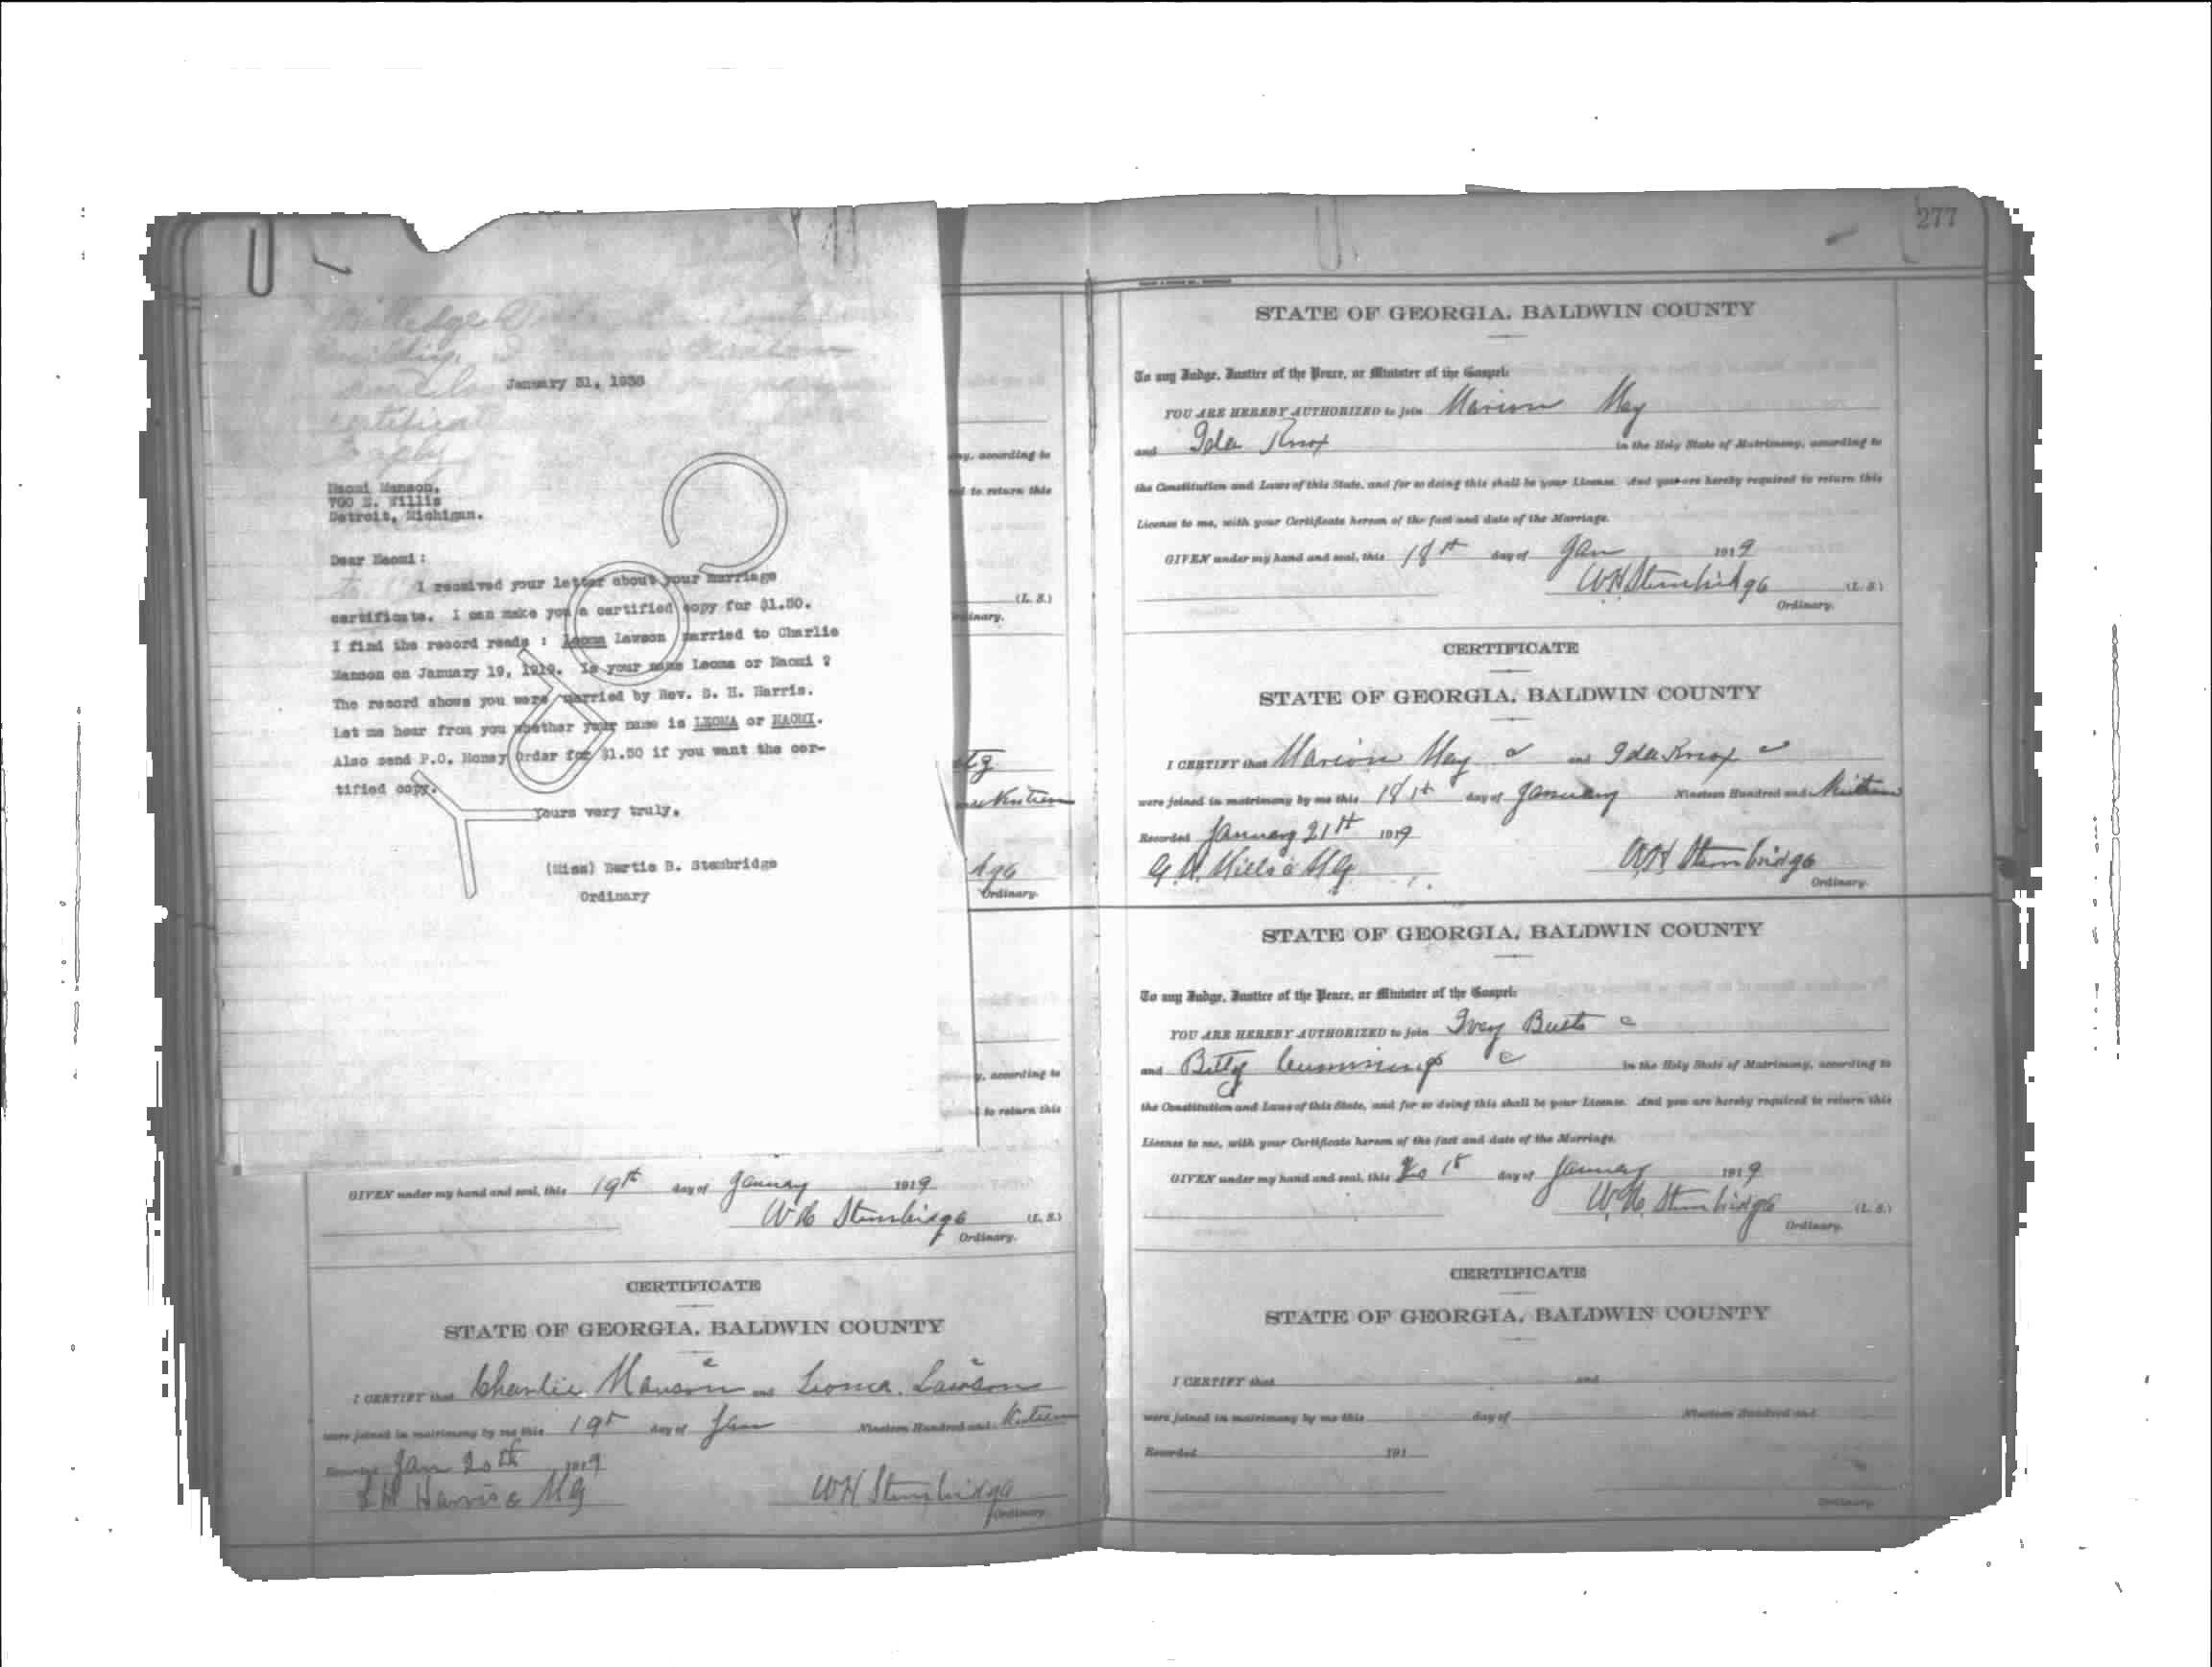 January 31, 1938
Naomi Manson,
700 E. Willis
Detroit, Michigan.
Dear Naomi:
I received your letter about your marriage
certificate. I can make you a certified copy for $1.50.
I find the record reads : Leoma Lawson married to Charlie
Manson on January 19, 1919. Is your name Leoma or Naomi ?
The record shows you were married by Rev. S. H. Harris.
Let me hear from you whether your name is LEOMA or NAOMI.
Also send P.O. Money Order for $1.50 if you want the cer-
tified copy.
Yours very truly,
(Miss) Bertie B. Stembridge
Ordinary
COPY
certificate
reply
ny, according to
ed to return this
(L. S.)
Ordinary.
Ordinary.
y, according to
to return this
GIVEN under my hand and seal, this 19th day of January 1919
W H Stembridge (L. S.)
Ordinary.
CERTIFICATE
STATE OF GEORGIA, BALDWIN COUNTY
I CERTIFY that Charlie Manson c and Leoma Lawson c
were joined in matrimony by me this 19th day of Jan Nineteen Hundred and Nineteen
Recorded Jan 20th 1919
S H Harris c M G W H Stembridge
Ordinary.
277
STATE OF GEORGIA, BALDWIN COUNTY
To any Judge, Justice of the Peace, or Minister of the Gospel:
YOU ARE HEREBY AUTHORIZED to join Marion May
and Ida Knox in the Holy State of Matrimony, according to
the Constitution and Laws of this State, and for so doing this shall be your License. And you are hereby required to return this
License to me, with your Certificate hereon of the fact and date of the Marriage.
GIVEN under my hand and seal, this 18th day of Jan 1919
W H Stembridge (L. S.)
Ordinary.
CERTIFICATE
STATE OF GEORGIA, BALDWIN COUNTY
I CERTIFY that Marion May c and Ida Knox c
were joined in matrimony by me this 18th day of January Nineteen Hundred and Nineteen
Recorded January 21st 1919
W H Stembridge
Ordinary.
STATE OF GEORGIA, BALDWIN COUNTY
To any Judge, Justice of the Peace, or Minister of the Gospel:
YOU ARE HEREBY AUTHORIZED to join Ivey Butts c
and Betty Cummings c in the Holy State of Matrimony, according to
the Constitution and Laws of this State, and for so doing this shall be your License. And you are hereby required to return this
License to me, with your Certificate hereon of the fact and date of the Marriage.
GIVEN under my hand and seal, this day of January 1919
W. H. Stembridge (L. S.)
Ordinary.
CERTIFICATE
STATE OF GEORGIA, BALDWIN COUNTY
I CERTIFY that and
were joined in matrimony by me this day of Nineteen Hundred and
Recorded 191
Ordinary.